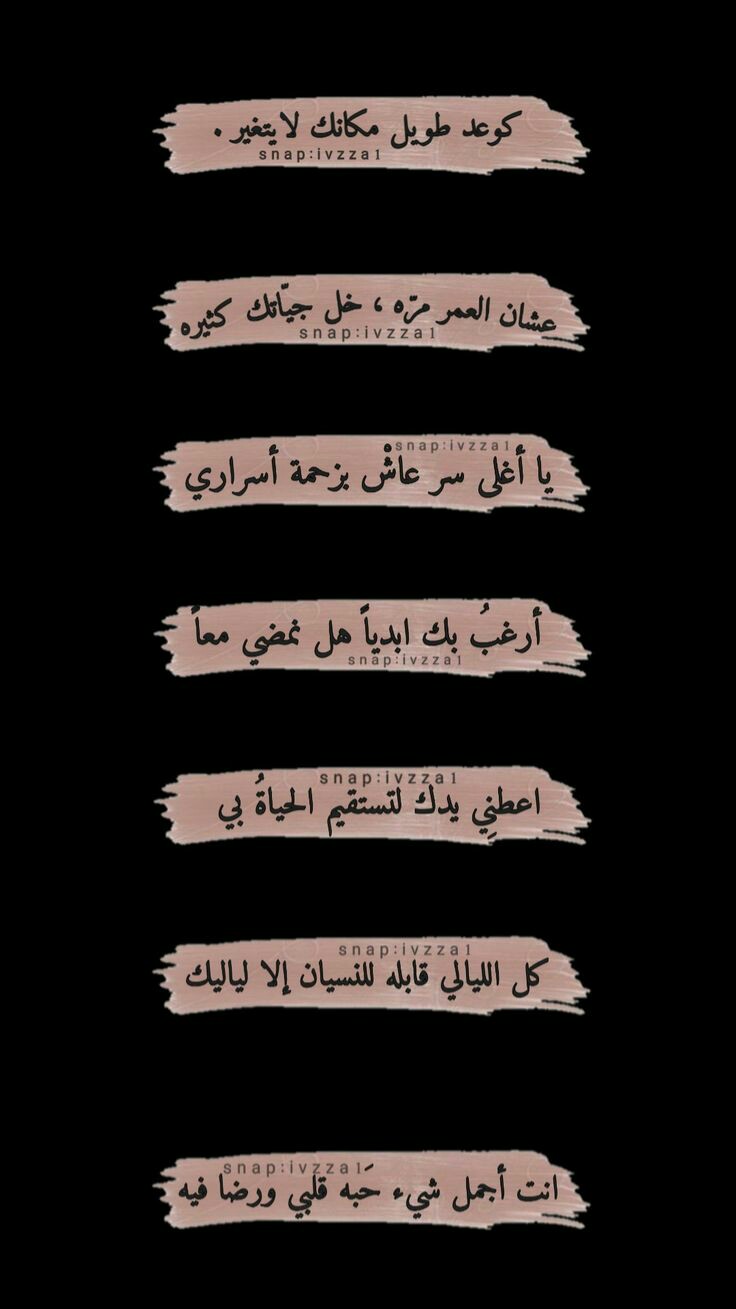 كوعد طويل مكانك لايتغير .
snap:ivzza1
عشان العمر مرّه ، خل جيّاتك كثيره
snap:ivzza1
snap:ivzza1
يا أغلى سر عاشْ بزحمة أسراري
أرغبُ بك ابدياً هل نمضي معاً
snap:ivzza1
snap:ivzza1
اعطنِي يدك لتستقيم الحياةُ بي
snap:ivzza1
كل الليالي قابله للنسيان إلا لياليك
snap:ivzza1
انت أجمل شيء حَبه قلبي ورضا فيه